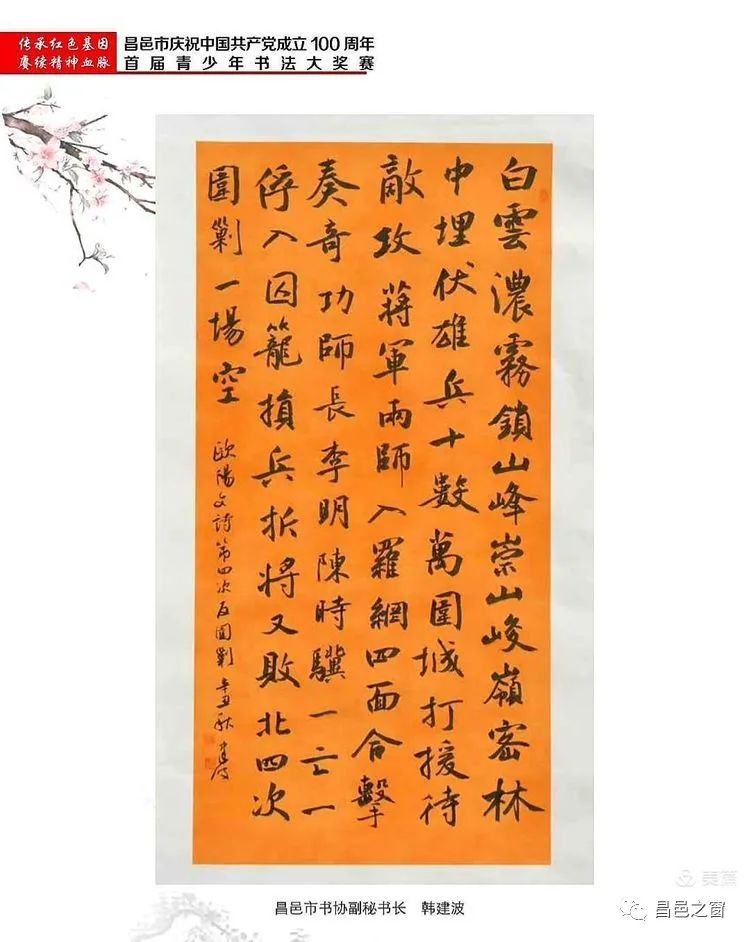 传承红色基因
赓续精神血脉
昌邑市庆祝中国共产党成立100周年
首届青少年书法大奖赛
白雲濃霧鎖山峰崇山峻嶺密林
中埋伏雄兵十數萬圍城打援待
敵攻蔣軍兩師入羅網四面合擊
奏奇功師長李明陳時驥一亡一
俘入囚籠損兵折將又敗北四次
圍剿一場空
歐陽文詩第四次反圍剿辛丑秋建波
昌邑市书协副秘书长 韩建波
美篇
昌邑之窗